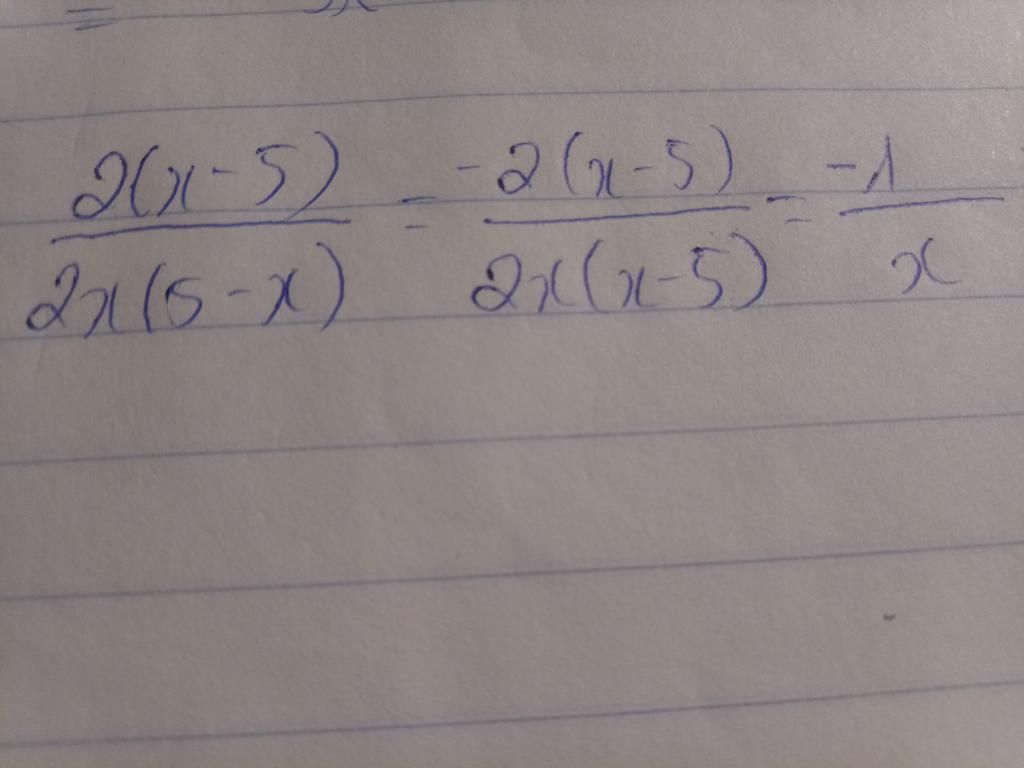 2(x-5) / 2x(5-x) = -2(x-5) / 2x(x-5) = -1 / x